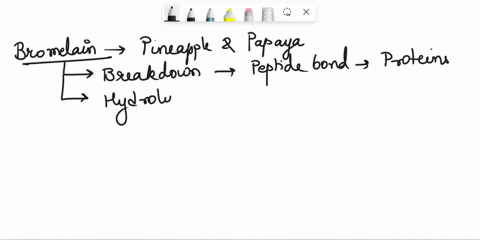 Bromelain → Pineapple & Papaya
→ Breakdown → Peptide bond → Proteins
→ Hydrolu